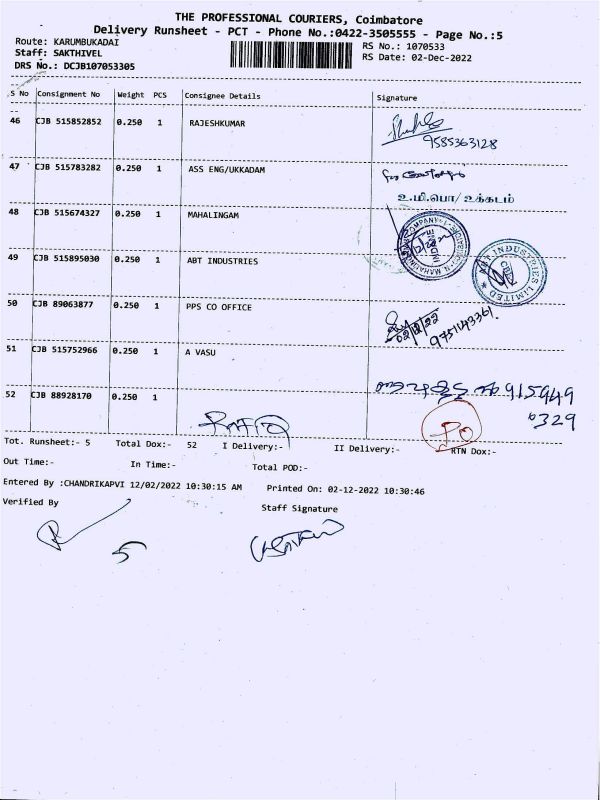 THE PROFESSIONAL COURIERS, Coimbatore
Delivery Runsheet - PCT - Phone No.:0422-3505555 - Page No.:5
Route: KARUMBUKADAI
RS No.: 1070533
Staff: SAKTHIVEL
RS Date: 02-Dec-2022
DRS No.: DCJB107053305
S No Consignment No Weight PCS Consignee Details Signature
46 CJB 515852852 0.250 1 RAJESHKUMAR
9585363128
47 CJB 515783282 0.250 1 ASS ENG/UKKADAM
உ.மி.பொ/உக்கடம்
48 CJB 515674327 0.250 1 MAHALINGAM
49 CJB 515895030 0.250 1 ABT INDUSTRIES
ABT INDUSTRIES LIMITED
50 CJB 89063877 0.250 1 PPS CO OFFICE
02/12/22
9751143361
51 CJB 515752966 0.250 1 A VASU
915949
0329
52 CJB 88928170 0.250 1
PO
Tot. Runsheet:- 5 Total Dox:- 52 I Delivery:- II Delivery:- RTN Dox:-
Out Time:- In Time:- Total POD:-
Entered By :CHANDRIKAPVI 12/02/2022 10:30:15 AM Printed On: 02-12-2022 10:30:46
Verified By Staff Signature
5